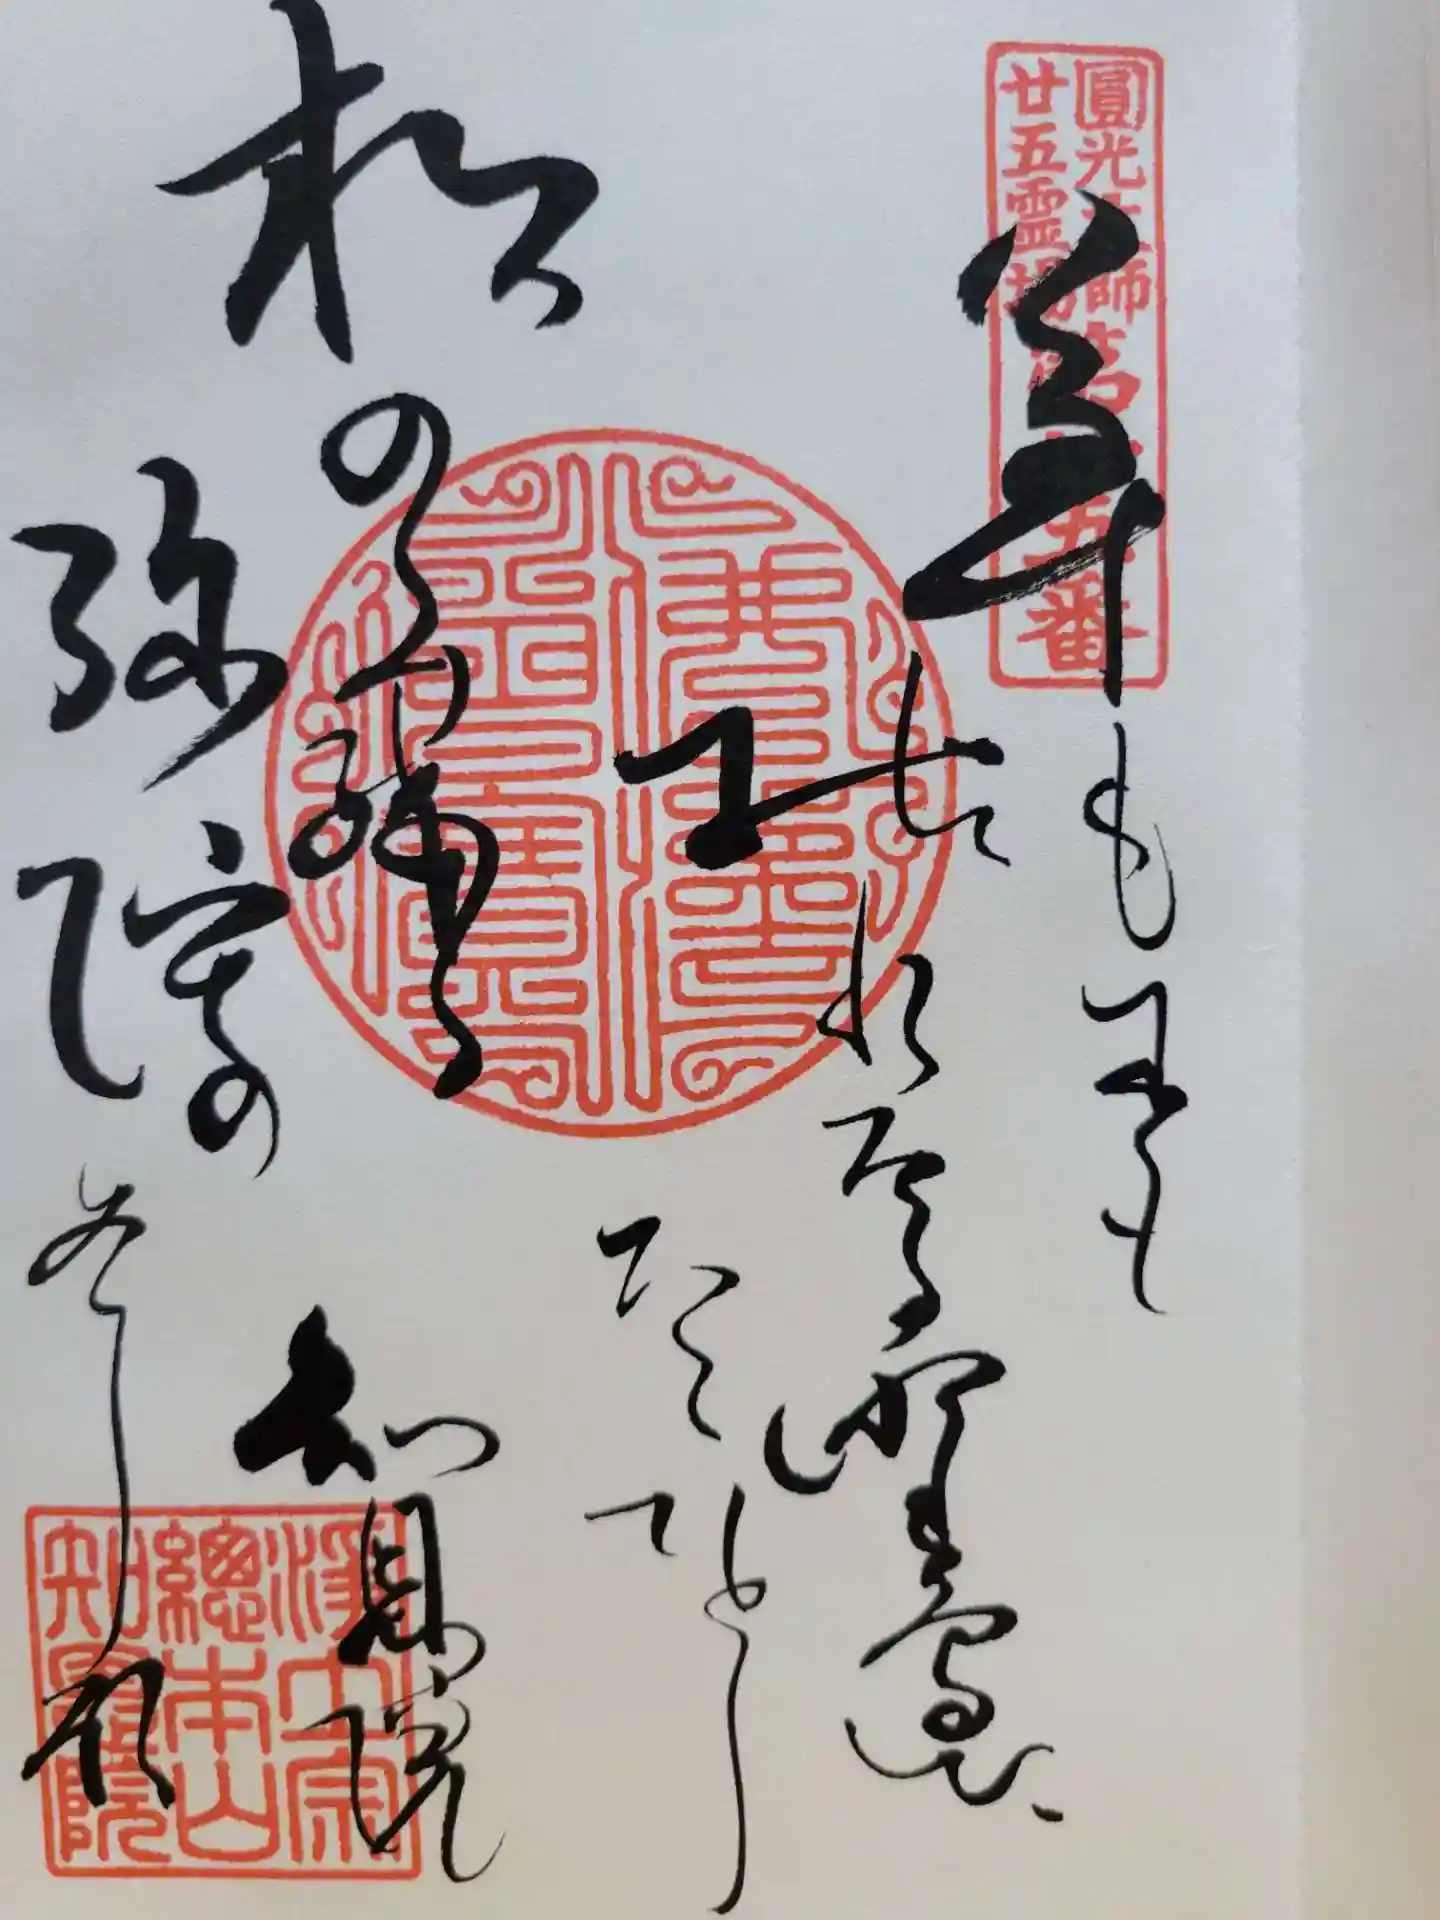 圓光大師
廿五霊場
第廿五番
草も木も
枯れたる野邊に
たゝひとり
松のみ残る
弥陀の本願
知恩院
佛法僧寶
淨土宗
總本山
知恩院